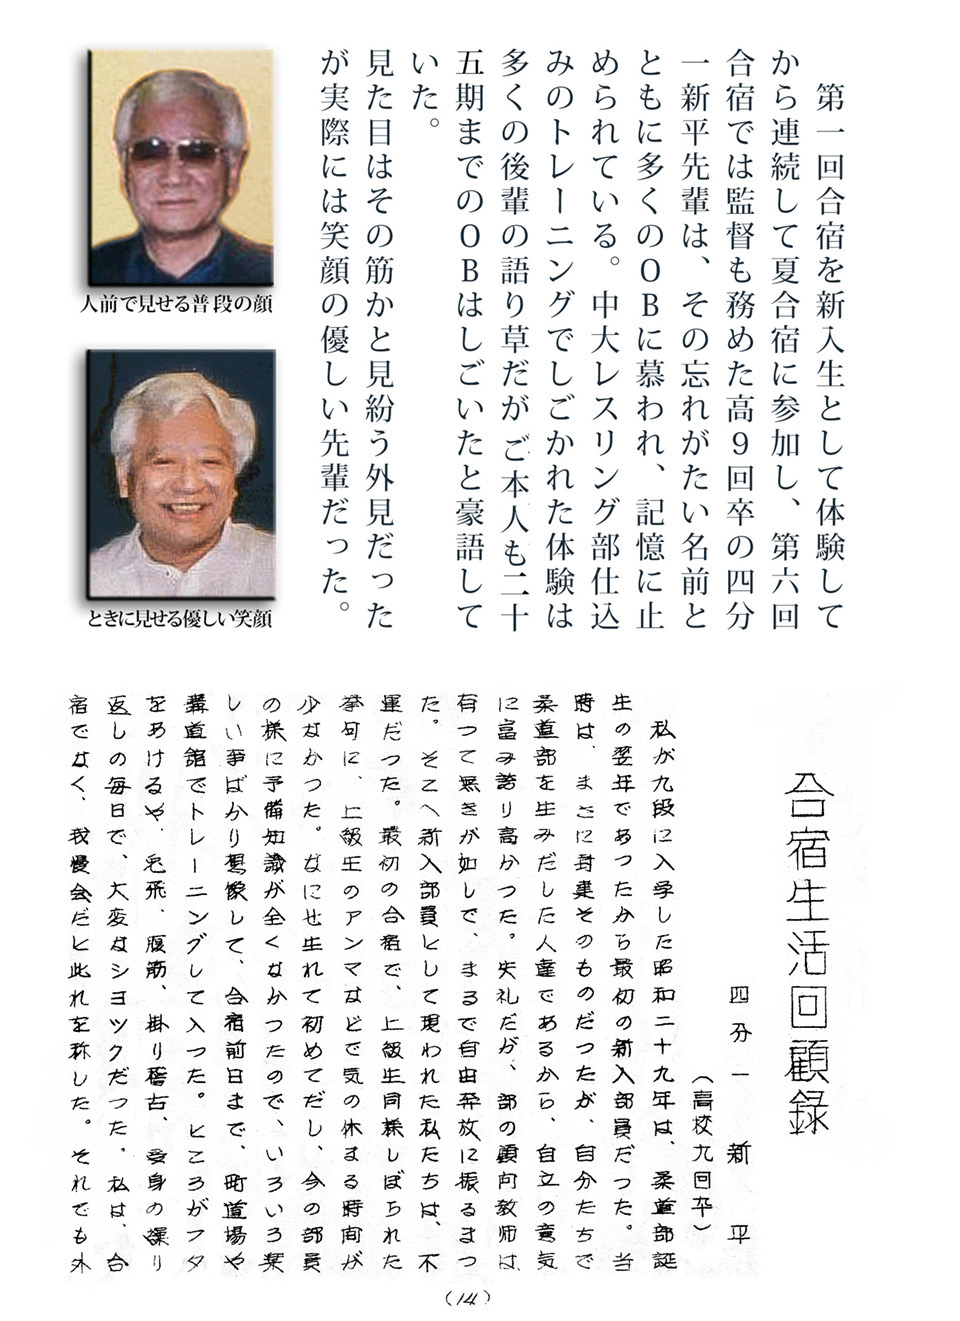 第一回合宿を新入生として体験して
から連続して夏合宿に参加し、第六回
合宿では監督も務めた高９回卒の四分
一新平先輩は、その忘れがたい名前と
ともに多くのＯＢに慕われ、記憶に止
められている。中大レスリング部仕込
みのトレーニングでしごかれた体験は
多くの後輩の語り草だがご本人も二十
五期までのＯＢはしごいたと豪語して
いた。
見た目はその筋かと見紛う外見だった
が実際には笑顔の優しい先輩だった。
人前で見せる普段の顔
ときに見せる優しい笑顔
合宿生活回顧録
四分一新平
（高校九回卒）
私が九段に入学した昭和二十九年は、柔道部誕
生の翌年であつたから最初の新入部員だつた。当
時は、まさに封建そのものだつたが、自分たちで
柔道部を生みだした人達であるから、自立の意気
に富み誇り高かつた。失礼だが、部の顧問教師は
有つて無きが如しで、まるで自由奔放に振るまつ
た。そこへ新入部員として現われた私たちは、不
運だつた。最初の合宿で、上級生同様しぼられた
挙句に、上級生のアンマなどで気の休まる時間が
少なかつた。なにせ生れて初めてだし、今の部員
の様に予備知識が全くなかつたので、いろいろ楽
しい事ばかり想像して、合宿前日まで、町道場や
講道館でトレーニングして入つた。ところがフタ
をあけるや、兎飛、腹筋、掛り稽古、受身の繰り
返しの毎日で、大変なシヨツクだつた。私は、合
宿でなく、我慢会だと此れを称した。それでも外
（14）